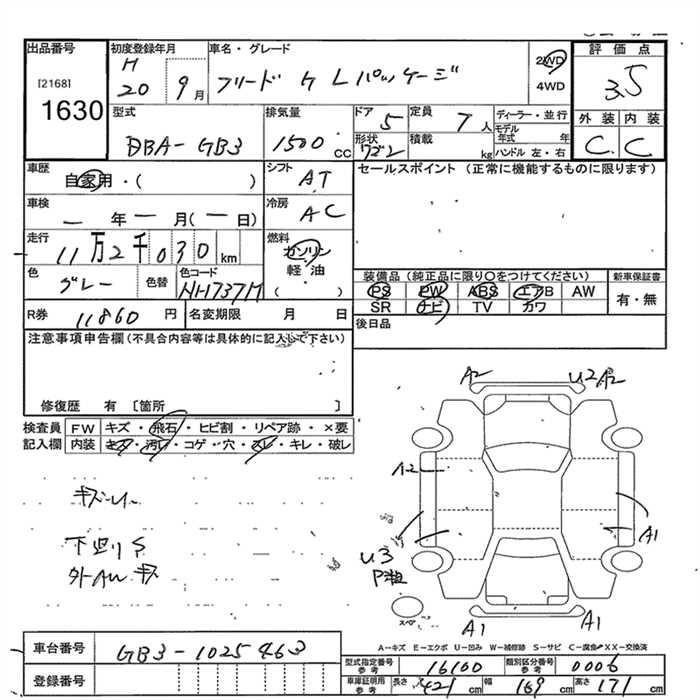 出品番号
[2168]
1630
初度登録年月
H
20 9月
車名・グレード
フリード G Lパッケージ
2WD
4WD
評価点
3.5
外装 内装
C C
型式
DBA-GB3
排気量
1500 cc
ドア
5
形状
ワゴン
定員
7人
積載
kg
ディーラー・並行
モデル年式 年
ハンドル 左・右
車歴
自家用・( )
シフト
AT
セールスポイント (正常に機能するものに限ります)
車検
一年一月(一日)
冷房
AC
走行
11万2千030km
燃料
ガソリン
軽・油
( )
色
グレー
色替
色コード
NH737M
装備品 (純正品に限り○をつけてください)
PS PW ABS エアB AW
SR ナビ TV カワ
新車保証書
有・無
R券
11860円
名変期限 月 日
後日品
注意事項申告欄 (不具合内容等は具体的に記入して下さい)
修復歴 有 [箇所 ]
検査員記入欄
FW キズ・飛石・ヒビ割・リペア跡・×要
内装 キズ・汚れ・コゲ・穴・スレ・キレ・破レ
下廻りS
外AW キズ
A2
U2 A2
A2
A1
U3
スペア
A1
A1
A-キズ E-エクボ U-凹み W-補修跡 S-サビ C-腐食 XX-交換済
車台番号
GB3-1025463
登録番号
型式指定番号 参考
16100
類別区分番号 参考
0006
車庫証明用 参考
長さ 421cm
幅 169cm
高さ 171cm